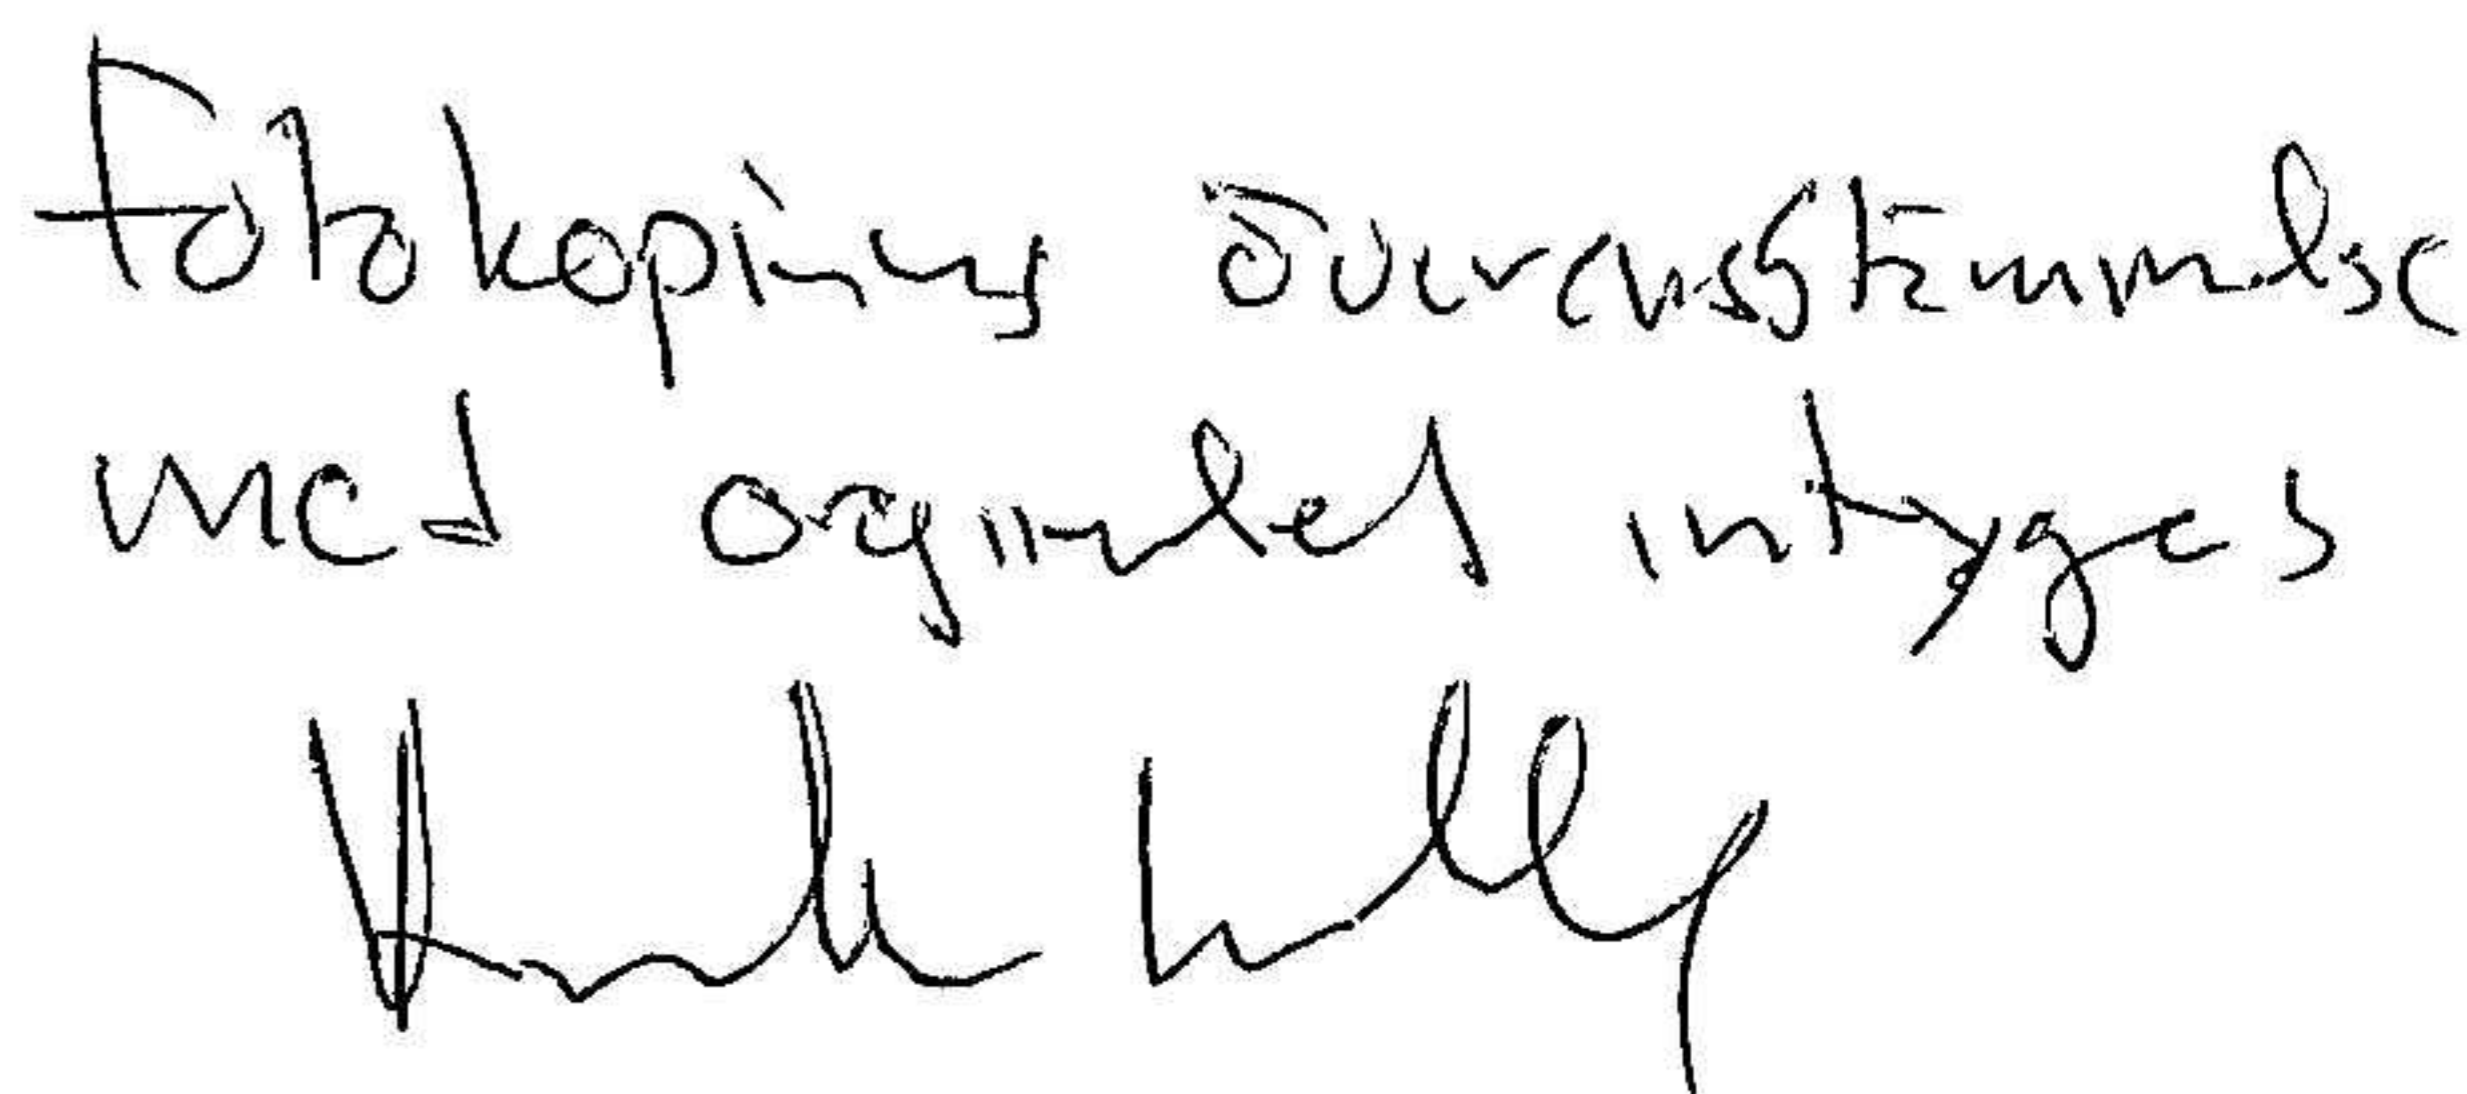 Fotokopians överensstämmelse
med orginalet intyges